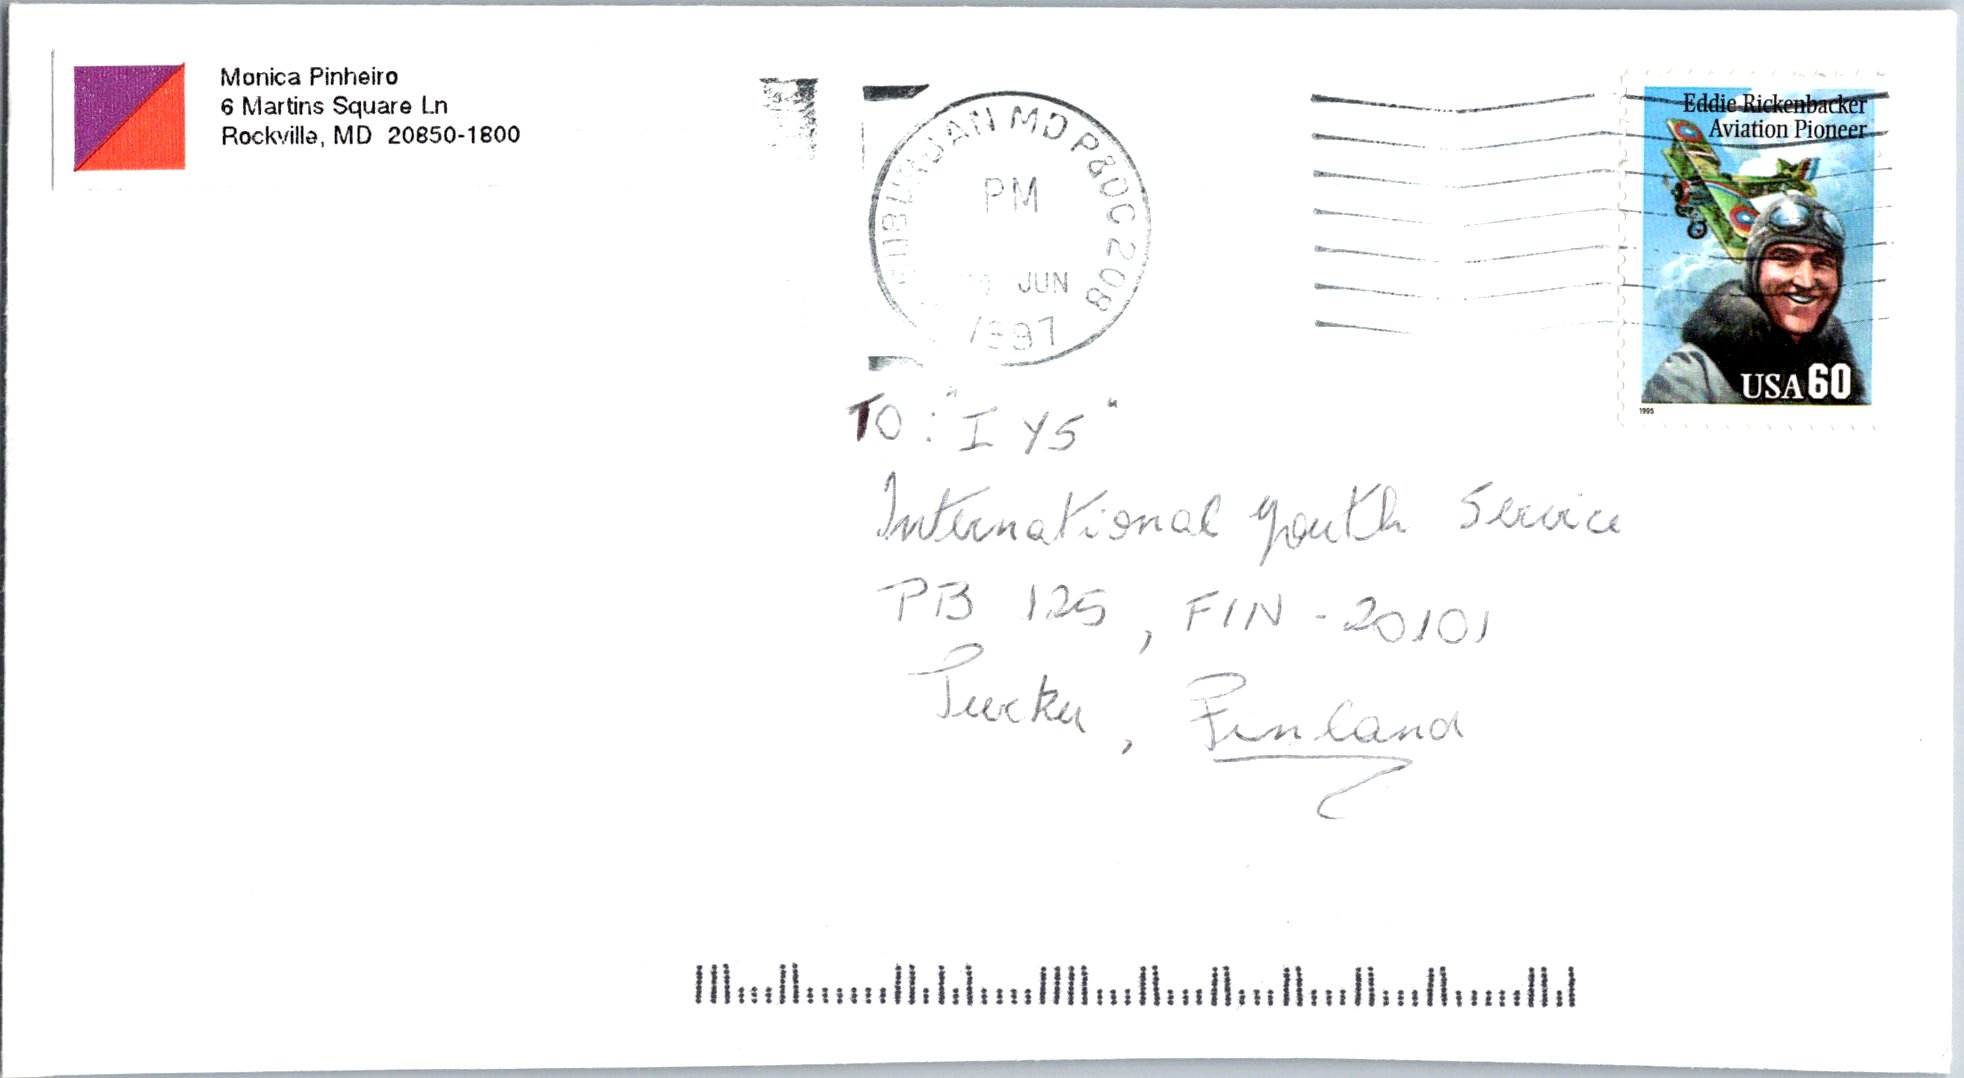 Monica Pinheiro
6 Martins Square Ln
Rockville, MD 20850-1800
SUBURBAN MD P&DC 208
PM
JUN
1997
Eddie Rickenbacker
Aviation Pioneer
USA 60
1995
TO: "IYS"
International Youth Service
PB 125, FIN-20101
Turku, Finland